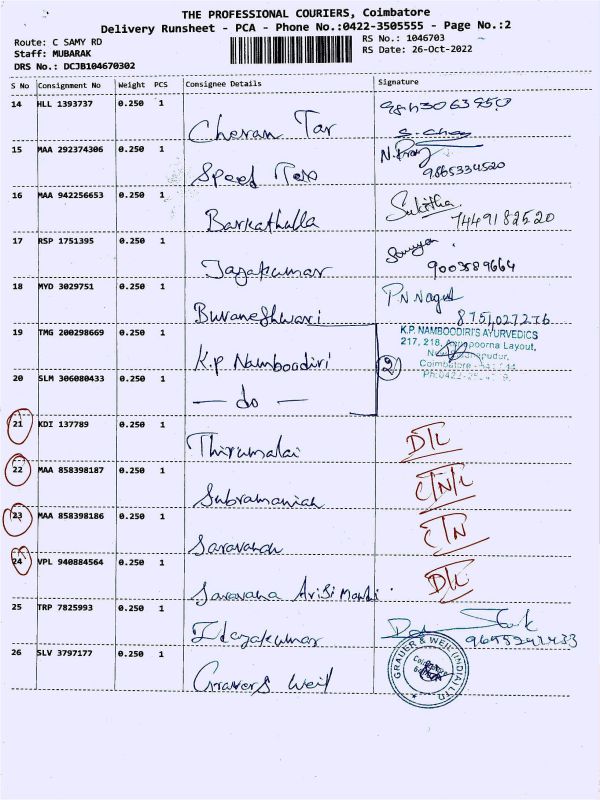 THE PROFESSIONAL COURIERS, Coimbatore
Delivery Runsheet - PCA - Phone No.:0422-3505555 - Page No.:2
Route: C SAMY RD
Staff: MUBARAK
DRS No.: DCJB104670302
RS No.: 1046703
RS Date: 26-Oct-2022
S No Consignment No Weight PCS Consignee Details Signature
14 HLL 1393737 0.250 1
Cheran Tar
15 MAA 292374306 0.250 1
Speed
9865334520
16 MAA 942256653 0.250 1
Barkathulla Sukitha
7449182520
17 RSP 1751395 0.250 1
Jayakumar 9003589664
18 MYD 3029751 0.250 1 P.N Nagul
Buvaneshwari 8751027276
19 TMG 200298669 0.250 1 K.P. NAMBOODIRI'S AYURVEDICS
217, 218, Annapoorna Layout,
K.P Namboodiri
Coimbatore
20 SLM 306080433 0.250 1 2
— do —
21 KDI 137789 0.250 1
Thirumalai D/L
22 MAA 858398187 0.250 1
Subramaniah C/N/L
23 MAA 858398186 0.250 1
Saravanan C/N
24 VPL 940884564 0.250 1
Saravana Arisi Mandi D/L
25 TRP 7825993 0.250 1
Idayakumar
26 SLV 3797177 0.250 1
GRAUER & WEIL (INDIA) LTD.
Gravers Weil